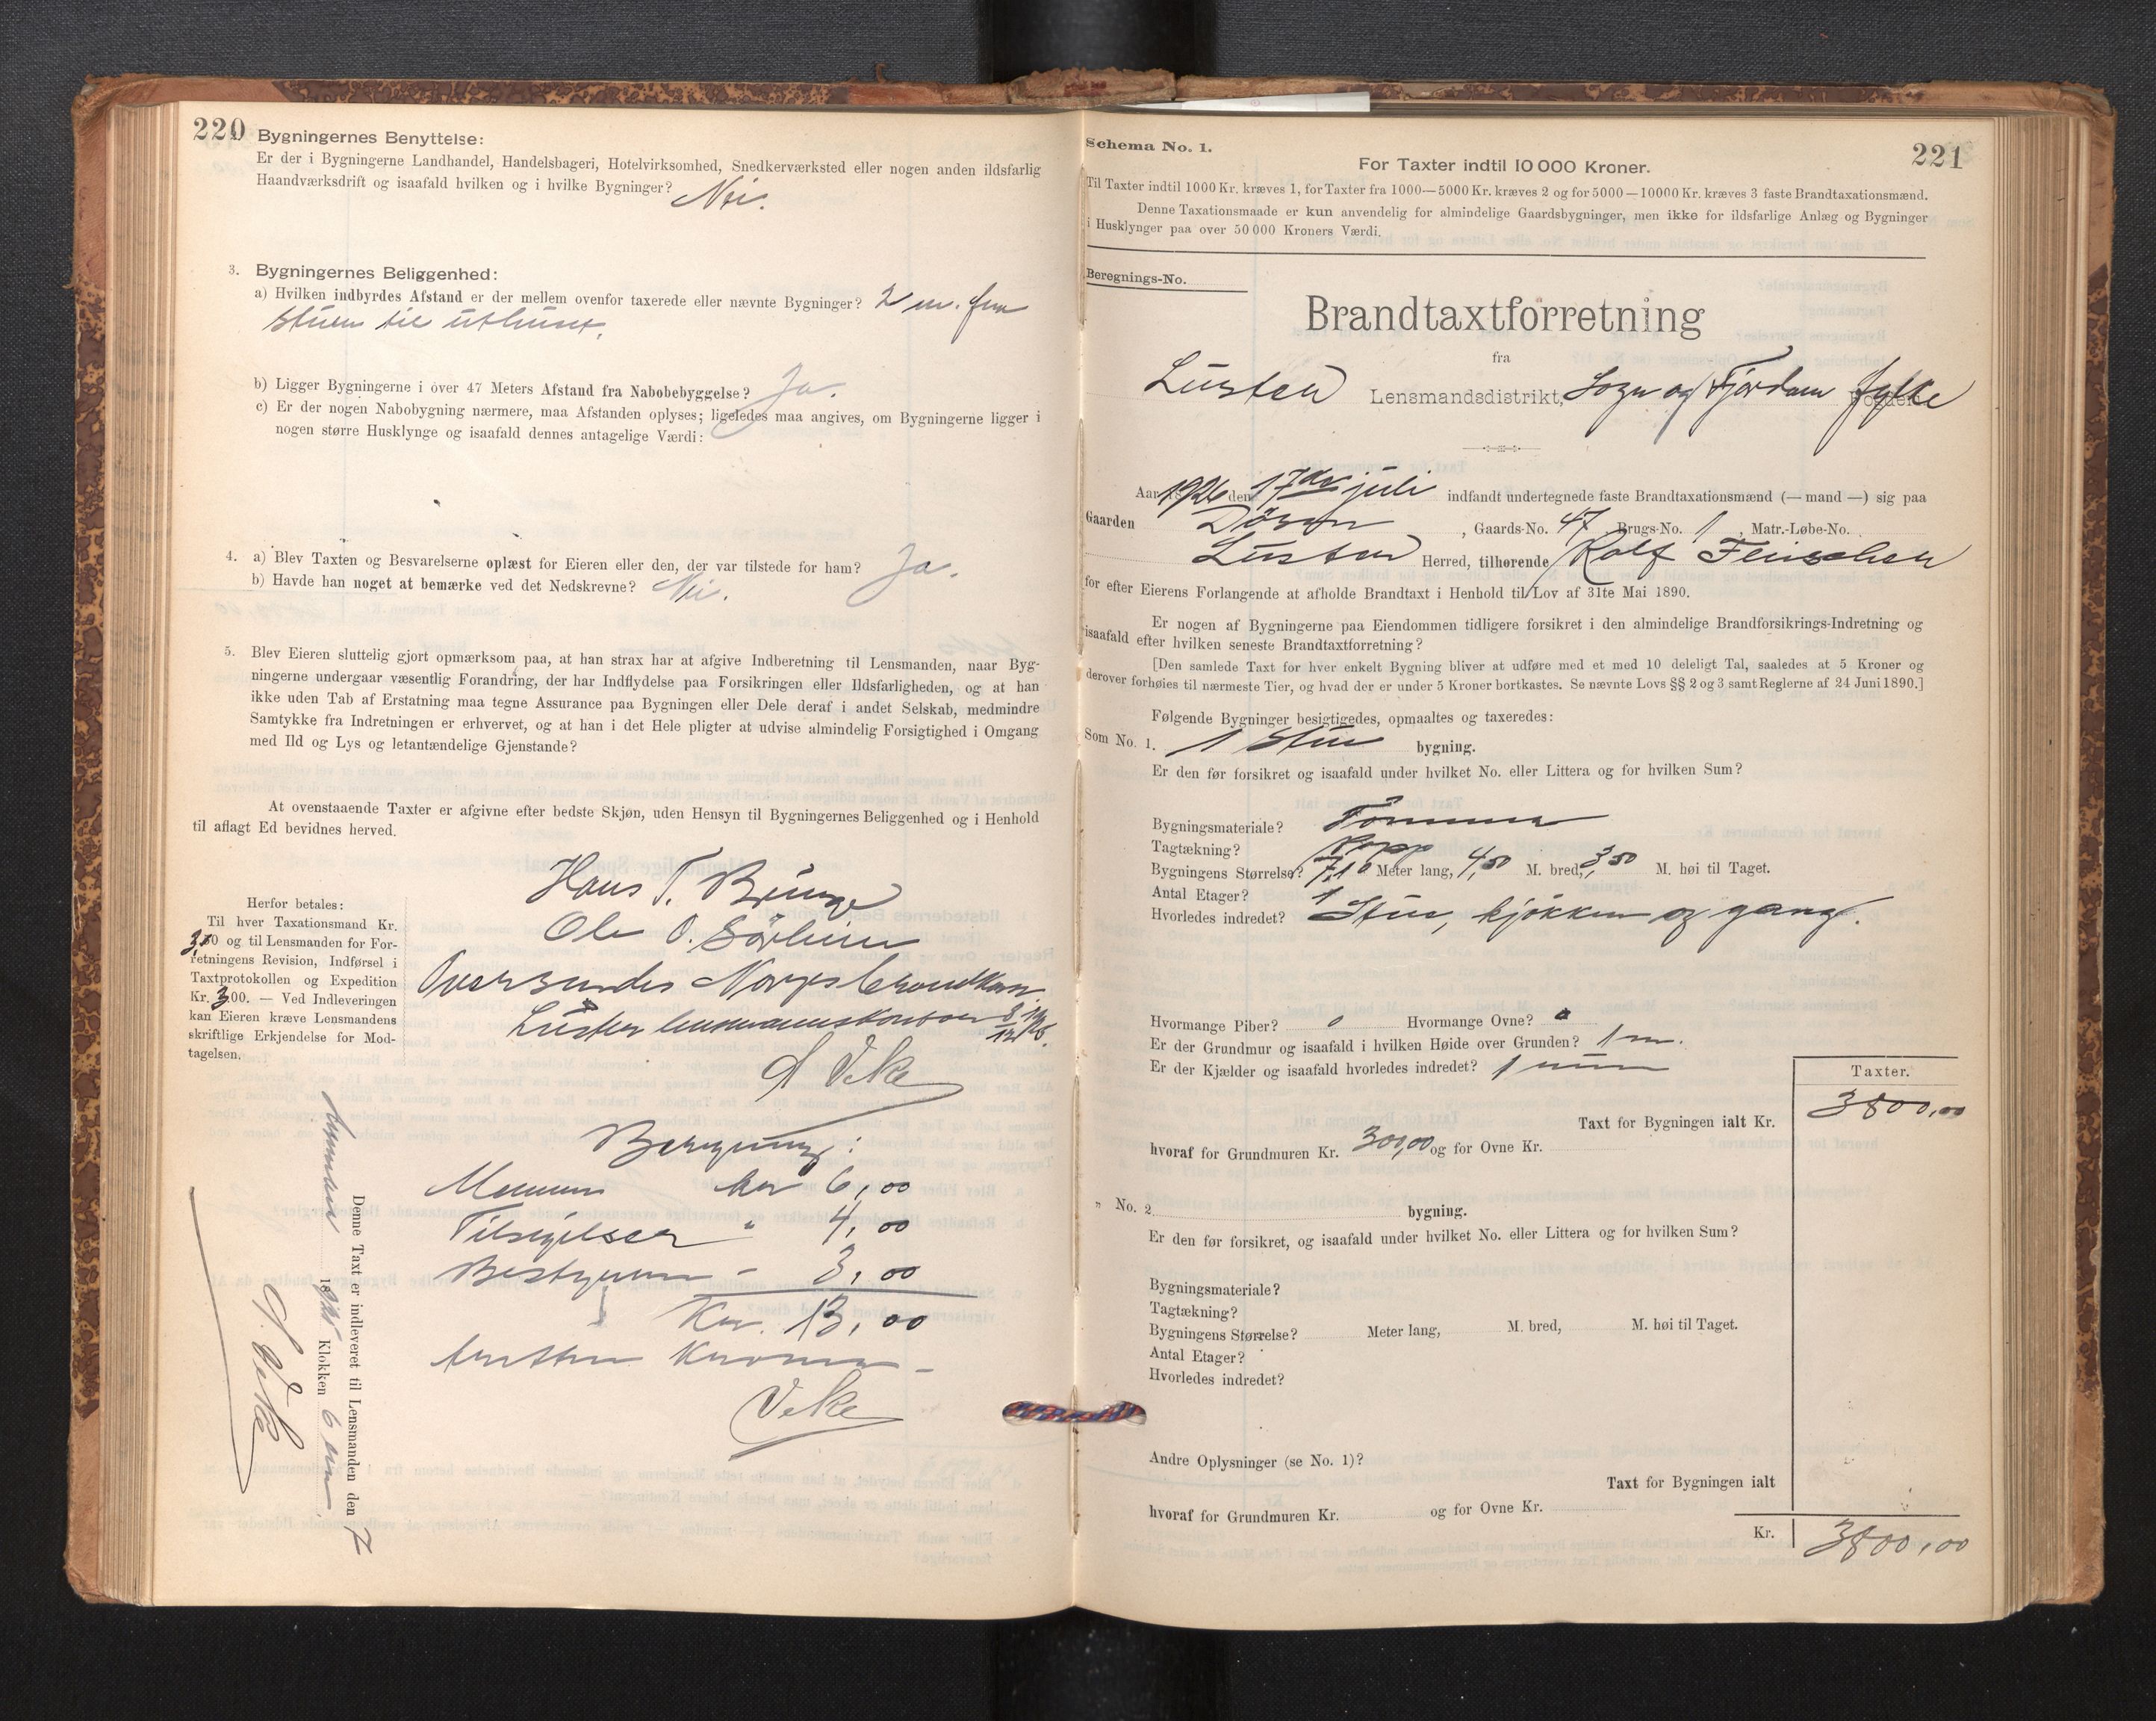 220
Bygningernes Benyttelse:
Er der i Bygningerne Landhandel, Handelsbageri, Hotelvirksomhed, Snedkerværksted eller nogen anden ildsfarlig
Haandværksdrift og isaafald hvilken og i hvilke Bygninger? Nei.
3. Bygningernes Beliggenhed:
a) Hvilken indbyrdes Afstand er der mellem ovenfor taxerede eller nævnte Bygninger? 2 m. fra
stuen til uthuset.
b) Ligger Bygningerne i over 47 Meters Afstand fra Nabobebyggelse? Ja.
c) Er der nogen Nabobygning nærmere, maa Afstanden oplyses; ligeledes maa angives, om Bygningerne ligger i
nogen større Husklynge og isaafald dennes antagelige Værdi:
4. a) Blev Taxten og Besvarelserne oplæst for Eieren eller den, der var tilstede for ham? Ja.
b) Havde han noget at bemærke ved det Nedskrevne? Nei.
5. Blev Eieren sluttelig gjort opmærksom paa, at han strax har at afgive Indberetning til Lensmanden, naar Byg-
ningerne undergaar væsentlig Forandring, der har Indflydelse paa Forsikringen eller Ildsfarligheden, og at han
ikke uden Tab af Erstatning maa tegne Assurance paa Bygningen eller Dele deraf i andet Selskab, medmindre
Samtykke fra Indretningen er erhvervet, og at han i det Hele pligter at udvise almindelig Forsigtighed i Omgang
med Ild og Lys og letantændelige Gjenstande?
At ovenstaaende Taxter er afgivne efter bedste Skjøn, uden Hensyn til Bygningernes Beliggenhed og i Henhold
til aflagt Ed bevidnes herved.
Hans T.
Ole O. Sørheim
Herfor betales:
Til hver Taxationsmand Kr.
3,00 og til Lensmanden for For-
retningens Revision, Indførsel i
Taxtprotokollen og Expedition
Kr. 3,00. — Ved Indleveringen
kan Eieren kræve Lensmandens
skriftlige Erkjendelse for Mod-
tagelsen.
Oversendes Norges brandkasse.
Luster lensmannskontor 8/12 1926.
Veke
Beregning:
kr 6,00
Tilsigelser " 4,00
Bestyreren - 3,00
Kr. 13,00
tretten Kroner -
Veke
Denne Taxt er indleveret til Lensmanden den 7
Klokken 6 em
Veke
221
Schema No. 1.
For Taxter indtil 10 000 Kroner.
Til Taxter indtil 1000 Kr. kræves 1, for Taxter fra 1000—5000 Kr. kræves 2 og for 5000—10000 Kr. kræves 3 faste Brandtaxationsmænd.
Denne Taxationsmaade er kun anvendelig for almindelige Gaardsbygninger, men ikke for ildsfarlige Anlæg og Bygninger
i Husklynger paa over 50 000 Kroners Værdi.
Beregnings-No.
Brandtaxtforretning
fra
Luster Lensmandsdistrikt, Sogn og Fjordane fylke
Aar 1926 den 17de juli indfandt undertegnede faste Brandtaxationsmænd (— mand —) sig paa
Gaarden Døsen, Gaards-No. 47 Brugs-No. 1, Matr.-Løbe-No.
Luster Herred, tilhørende Rolf
for efter Eierens Forlangende at afholde Brandtaxt i Henhold til Lov af 31te Mai 1890.
Er nogen af Bygningerne paa Eiendommen tidligere forsikret i den almindelige Brandforsikrings-Indretning og
isaafald efter hvilken seneste Brandtaxtforretning?
[Den samlede Taxt for hver enkelt Bygning bliver at udføre med et med 10 deleligt Tal, saaledes at 5 Kroner og
derover forhøies til nærmeste Tier, og hvad der er under 5 Kroner bortkastes. Se nævnte Lovs §§ 2 og 3 samt Reglerne af 24 Juni 1890.]
Følgende Bygninger besigtigedes, opmaaltes og taxeredes:
Som No. 1. 1 Stue bygning.
Er den før forsikret og isaafald under hvilket No. eller Littera og for hvilken Sum?
Bygningsmateriale? Tømmer
Tagtækning? Papp
Bygningens Størrelse? 7,10 Meter lang, 4,50 M. bred, 3,50 M. høi til Taget.
Antal Etager? 1
Hvorledes indredet? Stue, kjøkken og gang.
Hvormange Piber? 0 Hvormange Ovne? 0
Er der Grundmur og isaafald i hvilken Høide over Grunden? 1 m.
Er der Kjælder og isaafald hvorledes indredet? 1 rum
Taxter.
Taxt for Bygningen ialt Kr. 3800,00
hvoraf for Grundmuren Kr. 300,00 og for Ovne Kr.
" No. 2 bygning.
Er den før forsikret, og isaafald under hvilket No. eller Littera og for hvilken Sum?
Bygningsmateriale?
Tagtækning?
Bygningens Størrelse? Meter lang, M. bred, M. høi til Taget.
Antal Etager?
Hvorledes indredet?
Andre Oplysninger (se No. 1)?
Taxt for Bygningen ialt
hvoraf for Grundmuren Kr. og for Ovne Kr.
Kr. 3800,00